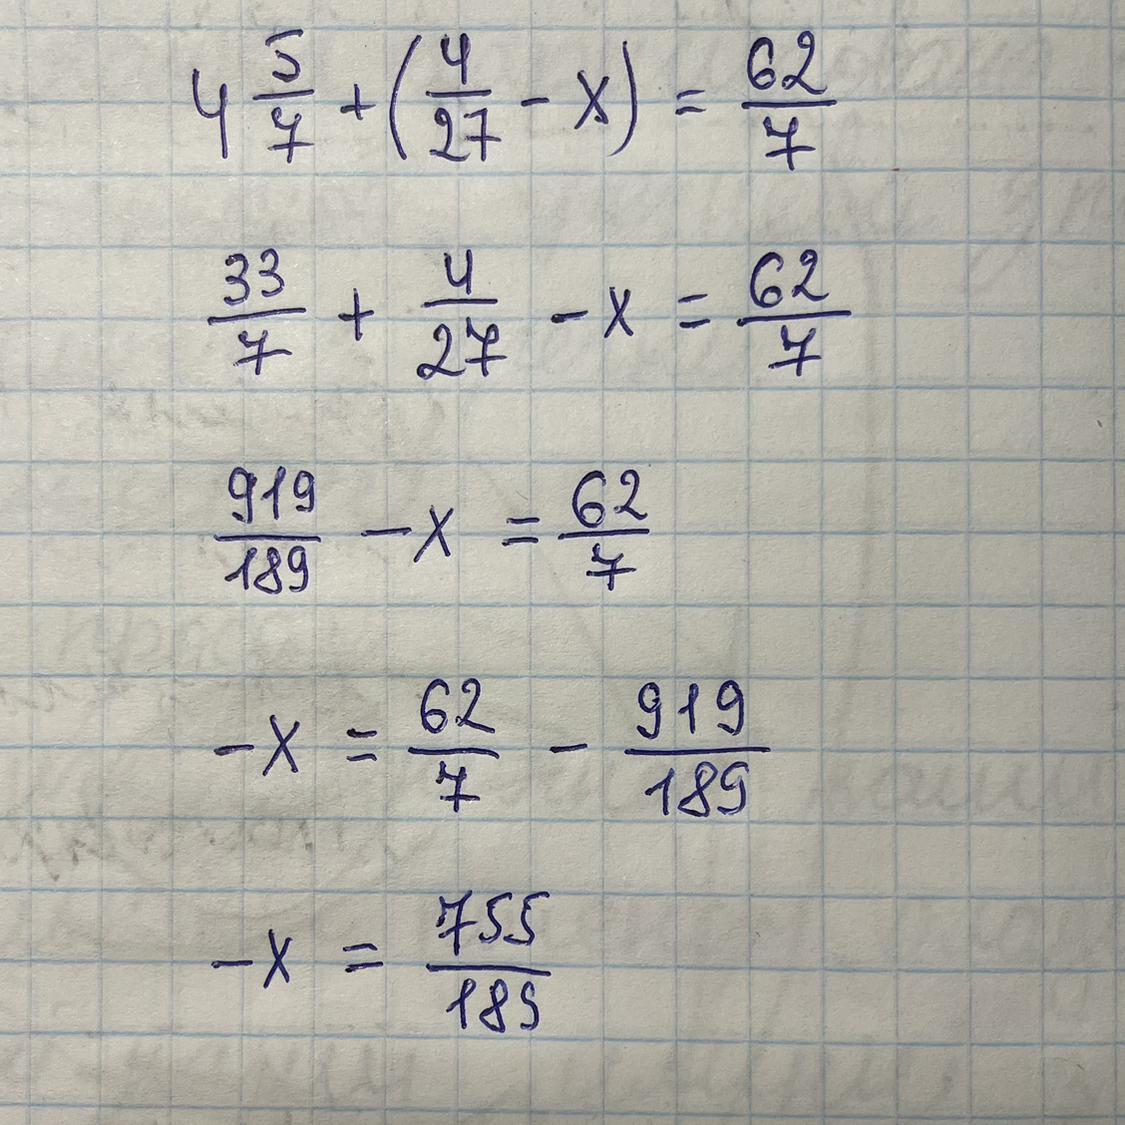 4 5/7 + (4/27 - x) = 62/7
33/7 + 4/27 - x = 62/7
919/189 - x = 62/7
-x = 62/7 - 919/189
-x = 755/189